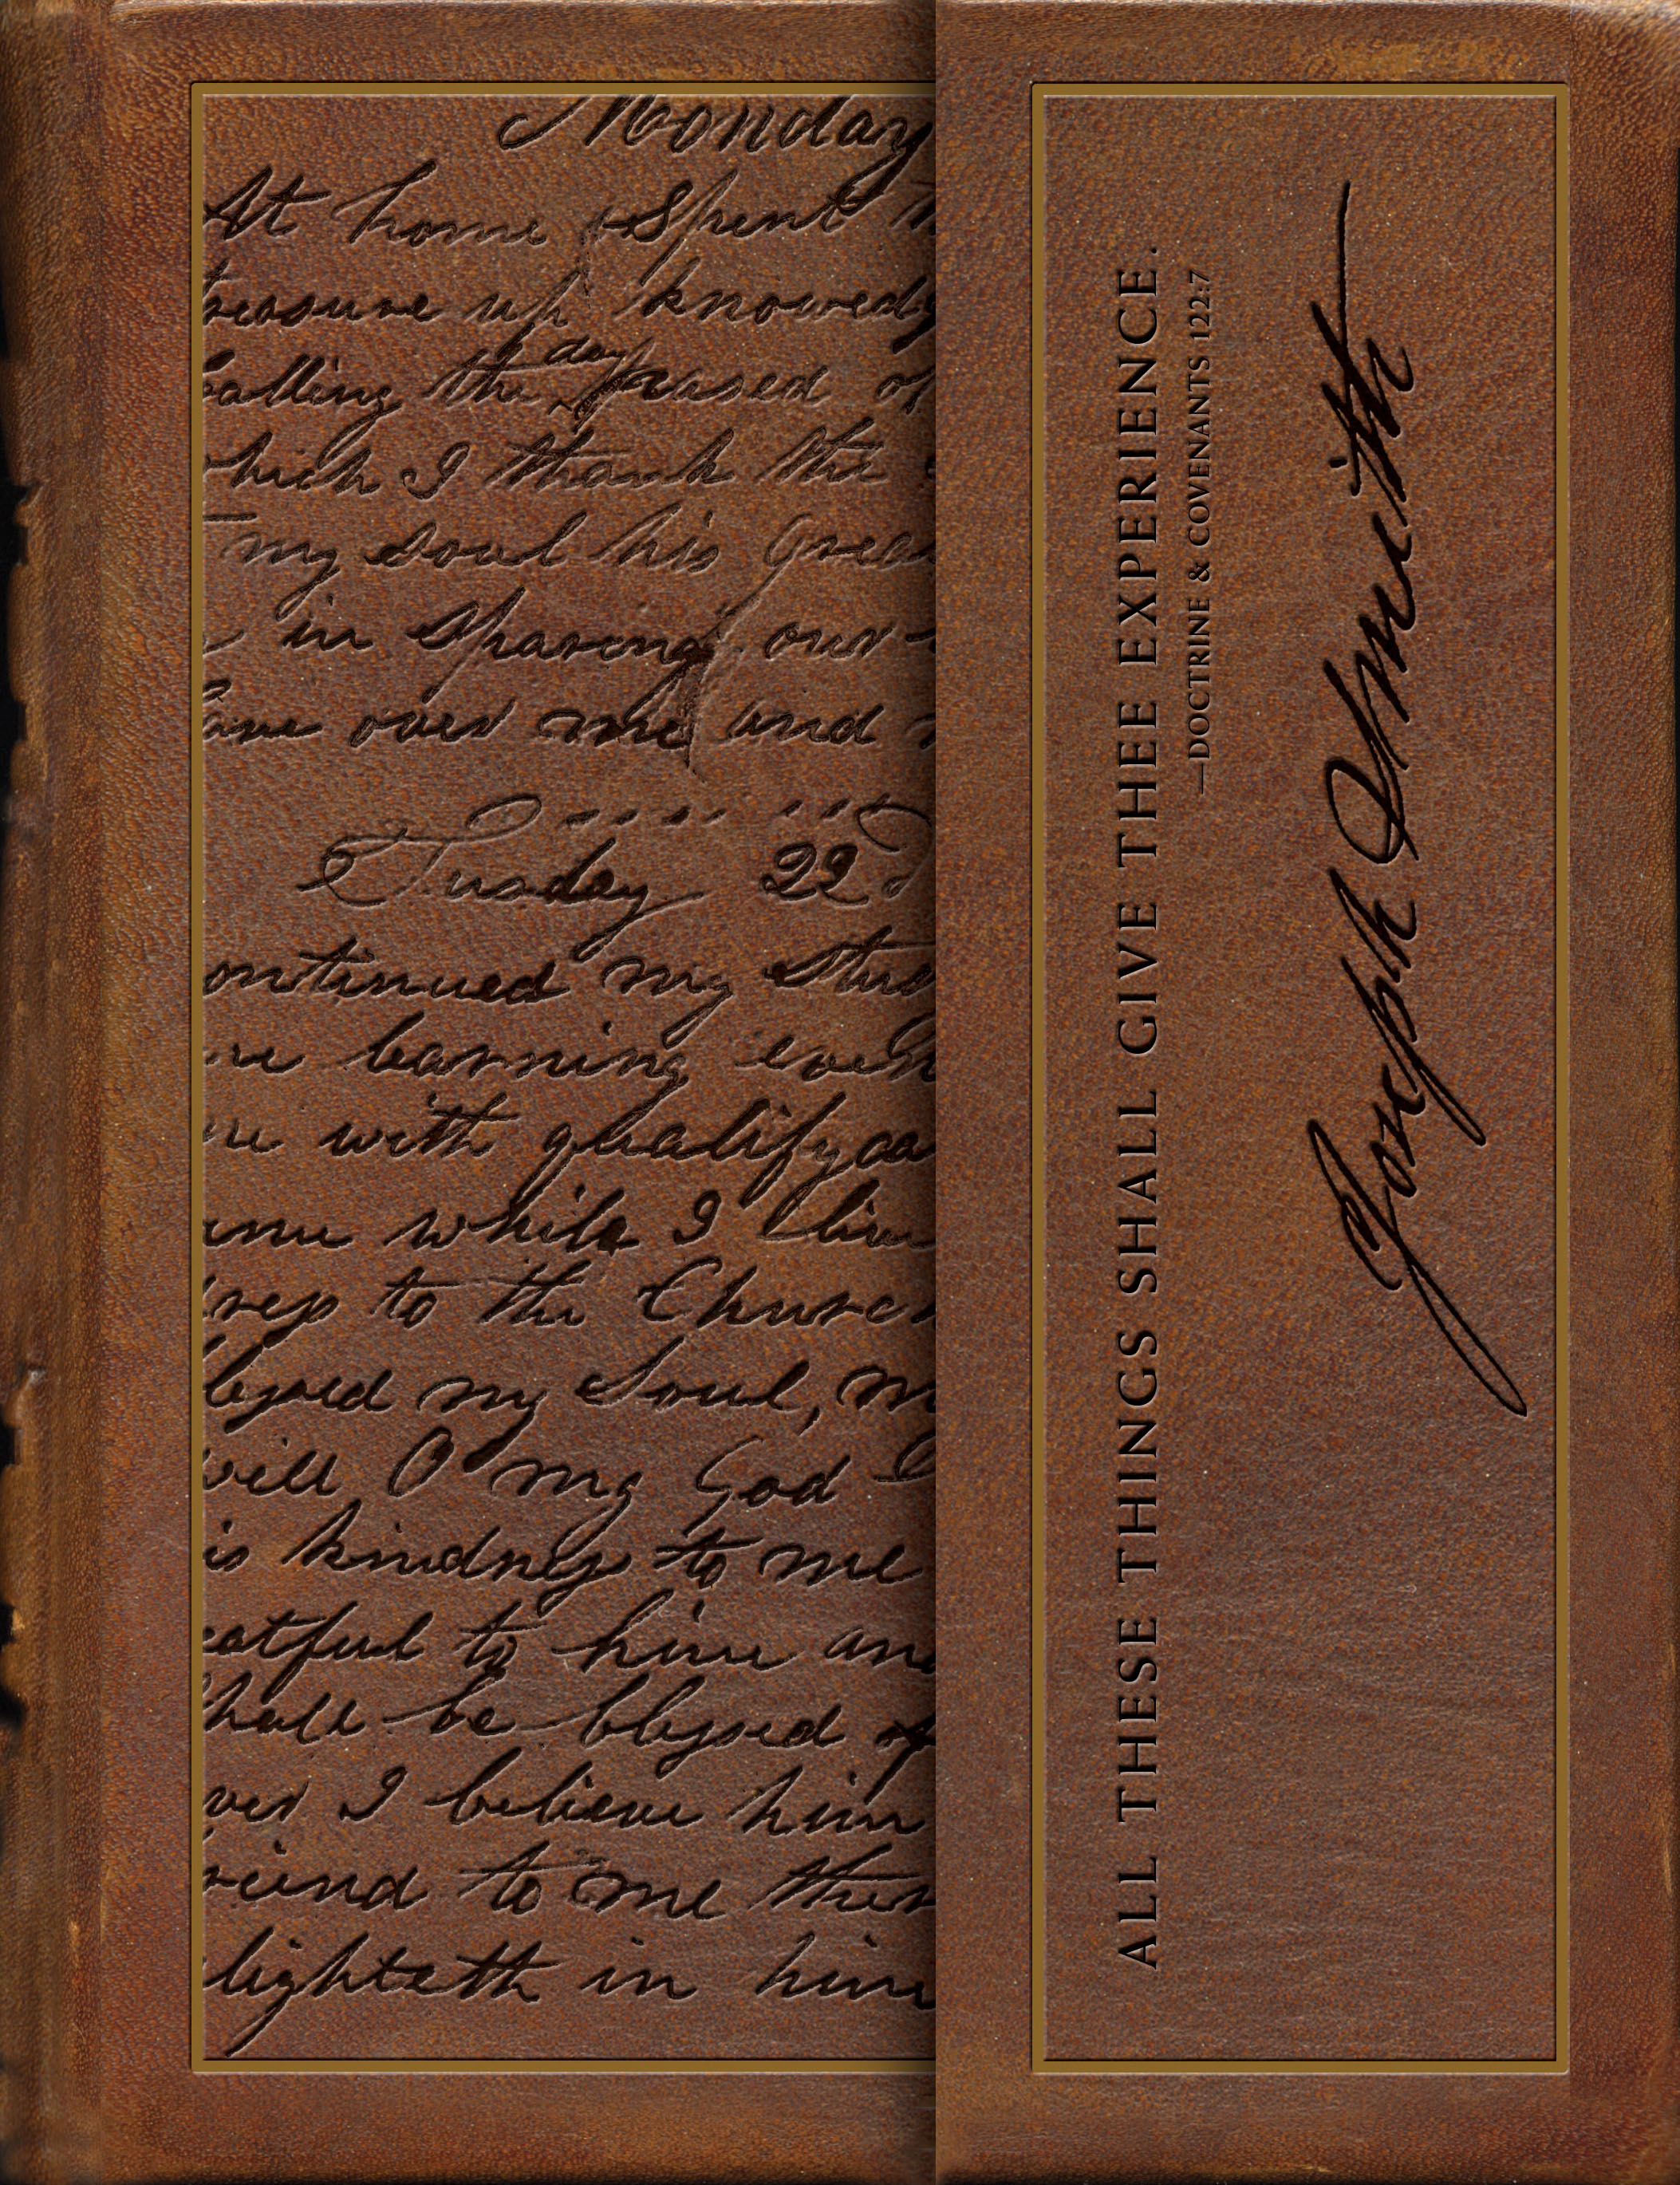 Monday
At home + Spent
treasure up knowedg
calling the day passed of
which I thank the
my soul his grea
in Spareing our
have over me and
Tusday 22
ontinued my stud
re learning even
me with qualifyca
ame while I live
to the Church
blessed my Soul, m
will O my God
is kindness to me
eatful to him and
shall be blessed of
ver I believe him
riend to me ther
lighteth in him
ALL THESE THINGS SHALL GIVE THEE EXPERIENCE.
—DOCTRINE & COVENANTS 122:7
Joseph Smith